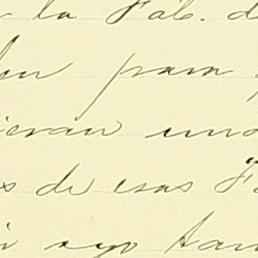 la Fab. d
para
ieran una
s de esas F
tan